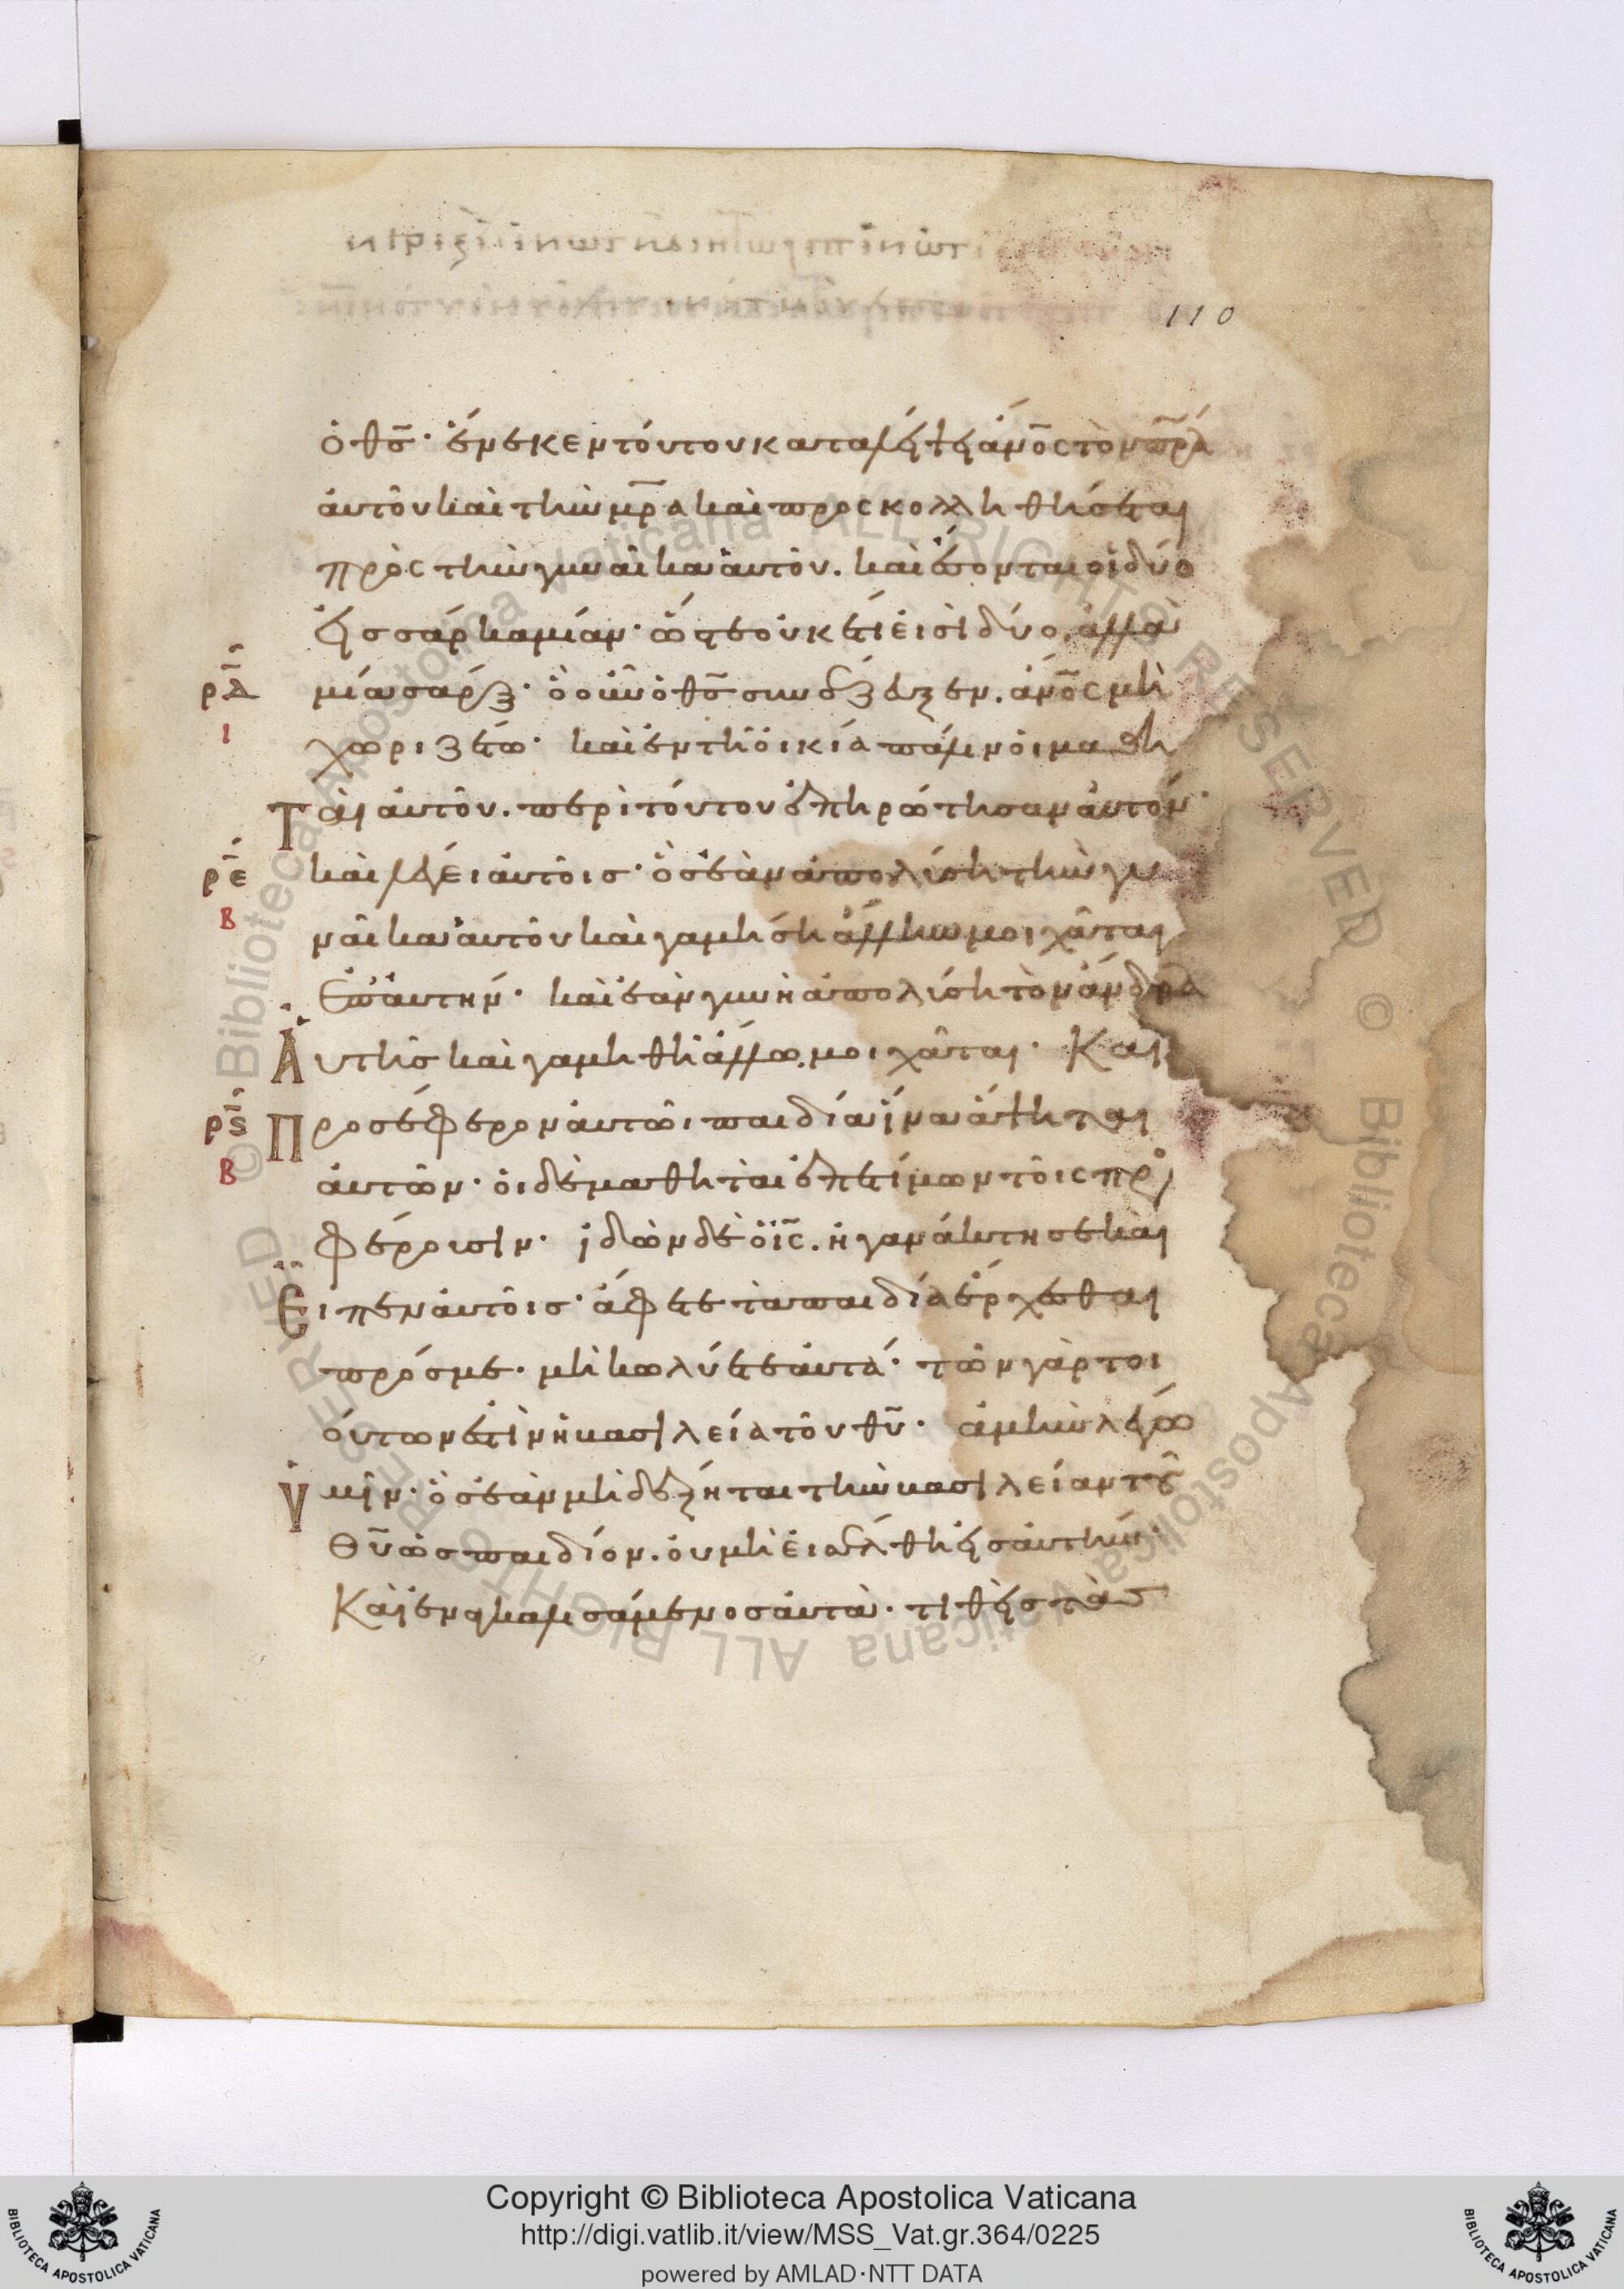 110
ὁ θς̅· ἕνεκεν τούτου καταλείψει ἄνο̅ς τὸν πρ̅α
αὐτοῦ καὶ τὴν μρ̅α καὶ προσκολληθήσεται
πρὸς τὴν γυναῖκα αὐτοῦ. καὶ ἔσονται οἱ δύο
εἰς σάρκα μίαν· ὥστε οὐκέτι εἰσὶ δύο, ἀλλὰ
ρ̅δ̅ μία σάρξ· ὃ οὖν ὁ θς̅ συνέζευξεν. ἄνο̅ς μὴ
ι χωριζέτω· καὶ ἐν τῇ οἰκία πάλιν οἱ μαθη
Ταὶ αὐτοῦ. περὶ τούτου ἐπηρώτησαν αὐτόν·
ρ̅ε̅ καὶ λέγει αὐτοῖς· ὃς ἐὰν ἀπολύσῃ τὴν γυ
β ναῖκα αὐτοῦ καὶ γαμήσῃ ἄλλην μοιχᾶται
ἐπ' αὐτήν· καὶ ἐὰν γυνὴ ἀπολύσῃ τὸν ἄνδρα
Αὐτῆς καὶ γαμηθῇ ἄλλω. μοιχᾶται· Και
ρ̅ς̅ Προσέφερον αὐτῶι παιδία ἵνα ἅψηται
β αὐτῶν· οἱ δὲ μαθηταὶ ἐπετίμων τοῖς προσ
φέρουσιν· ἰδὼν δὲ ὁ ις̅. ἠγανάκτησε καὶ
Εἶπεν αὐτοῖς· ἄφετε τὰ παιδία ἔρχεσθαι
πρός με· μὴ κωλύετε αὐτά· τῶν γὰρ τοι
ούτων ἐστὶν ἡ βασιλεία τοῦ θυ̅· ἀμὴν λέγω
Ὑμῖν· ὃς ἐὰν μὴ δέξηται τὴν βασιλείαν τοῦ
Θυ̅ ὡς παιδίον. οὐ μὴ εἰσέλθῃ εἰς αὐτήν·
Καὶ ἐναγκαλισάμενος αὐτὰ· τιθεὶς τὰς
Copyright © Biblioteca Apostolica Vaticana
http://digi.vatlib.it/view/MSS_Vat.gr.364/0225
powered by AMLAD·NTT DATA